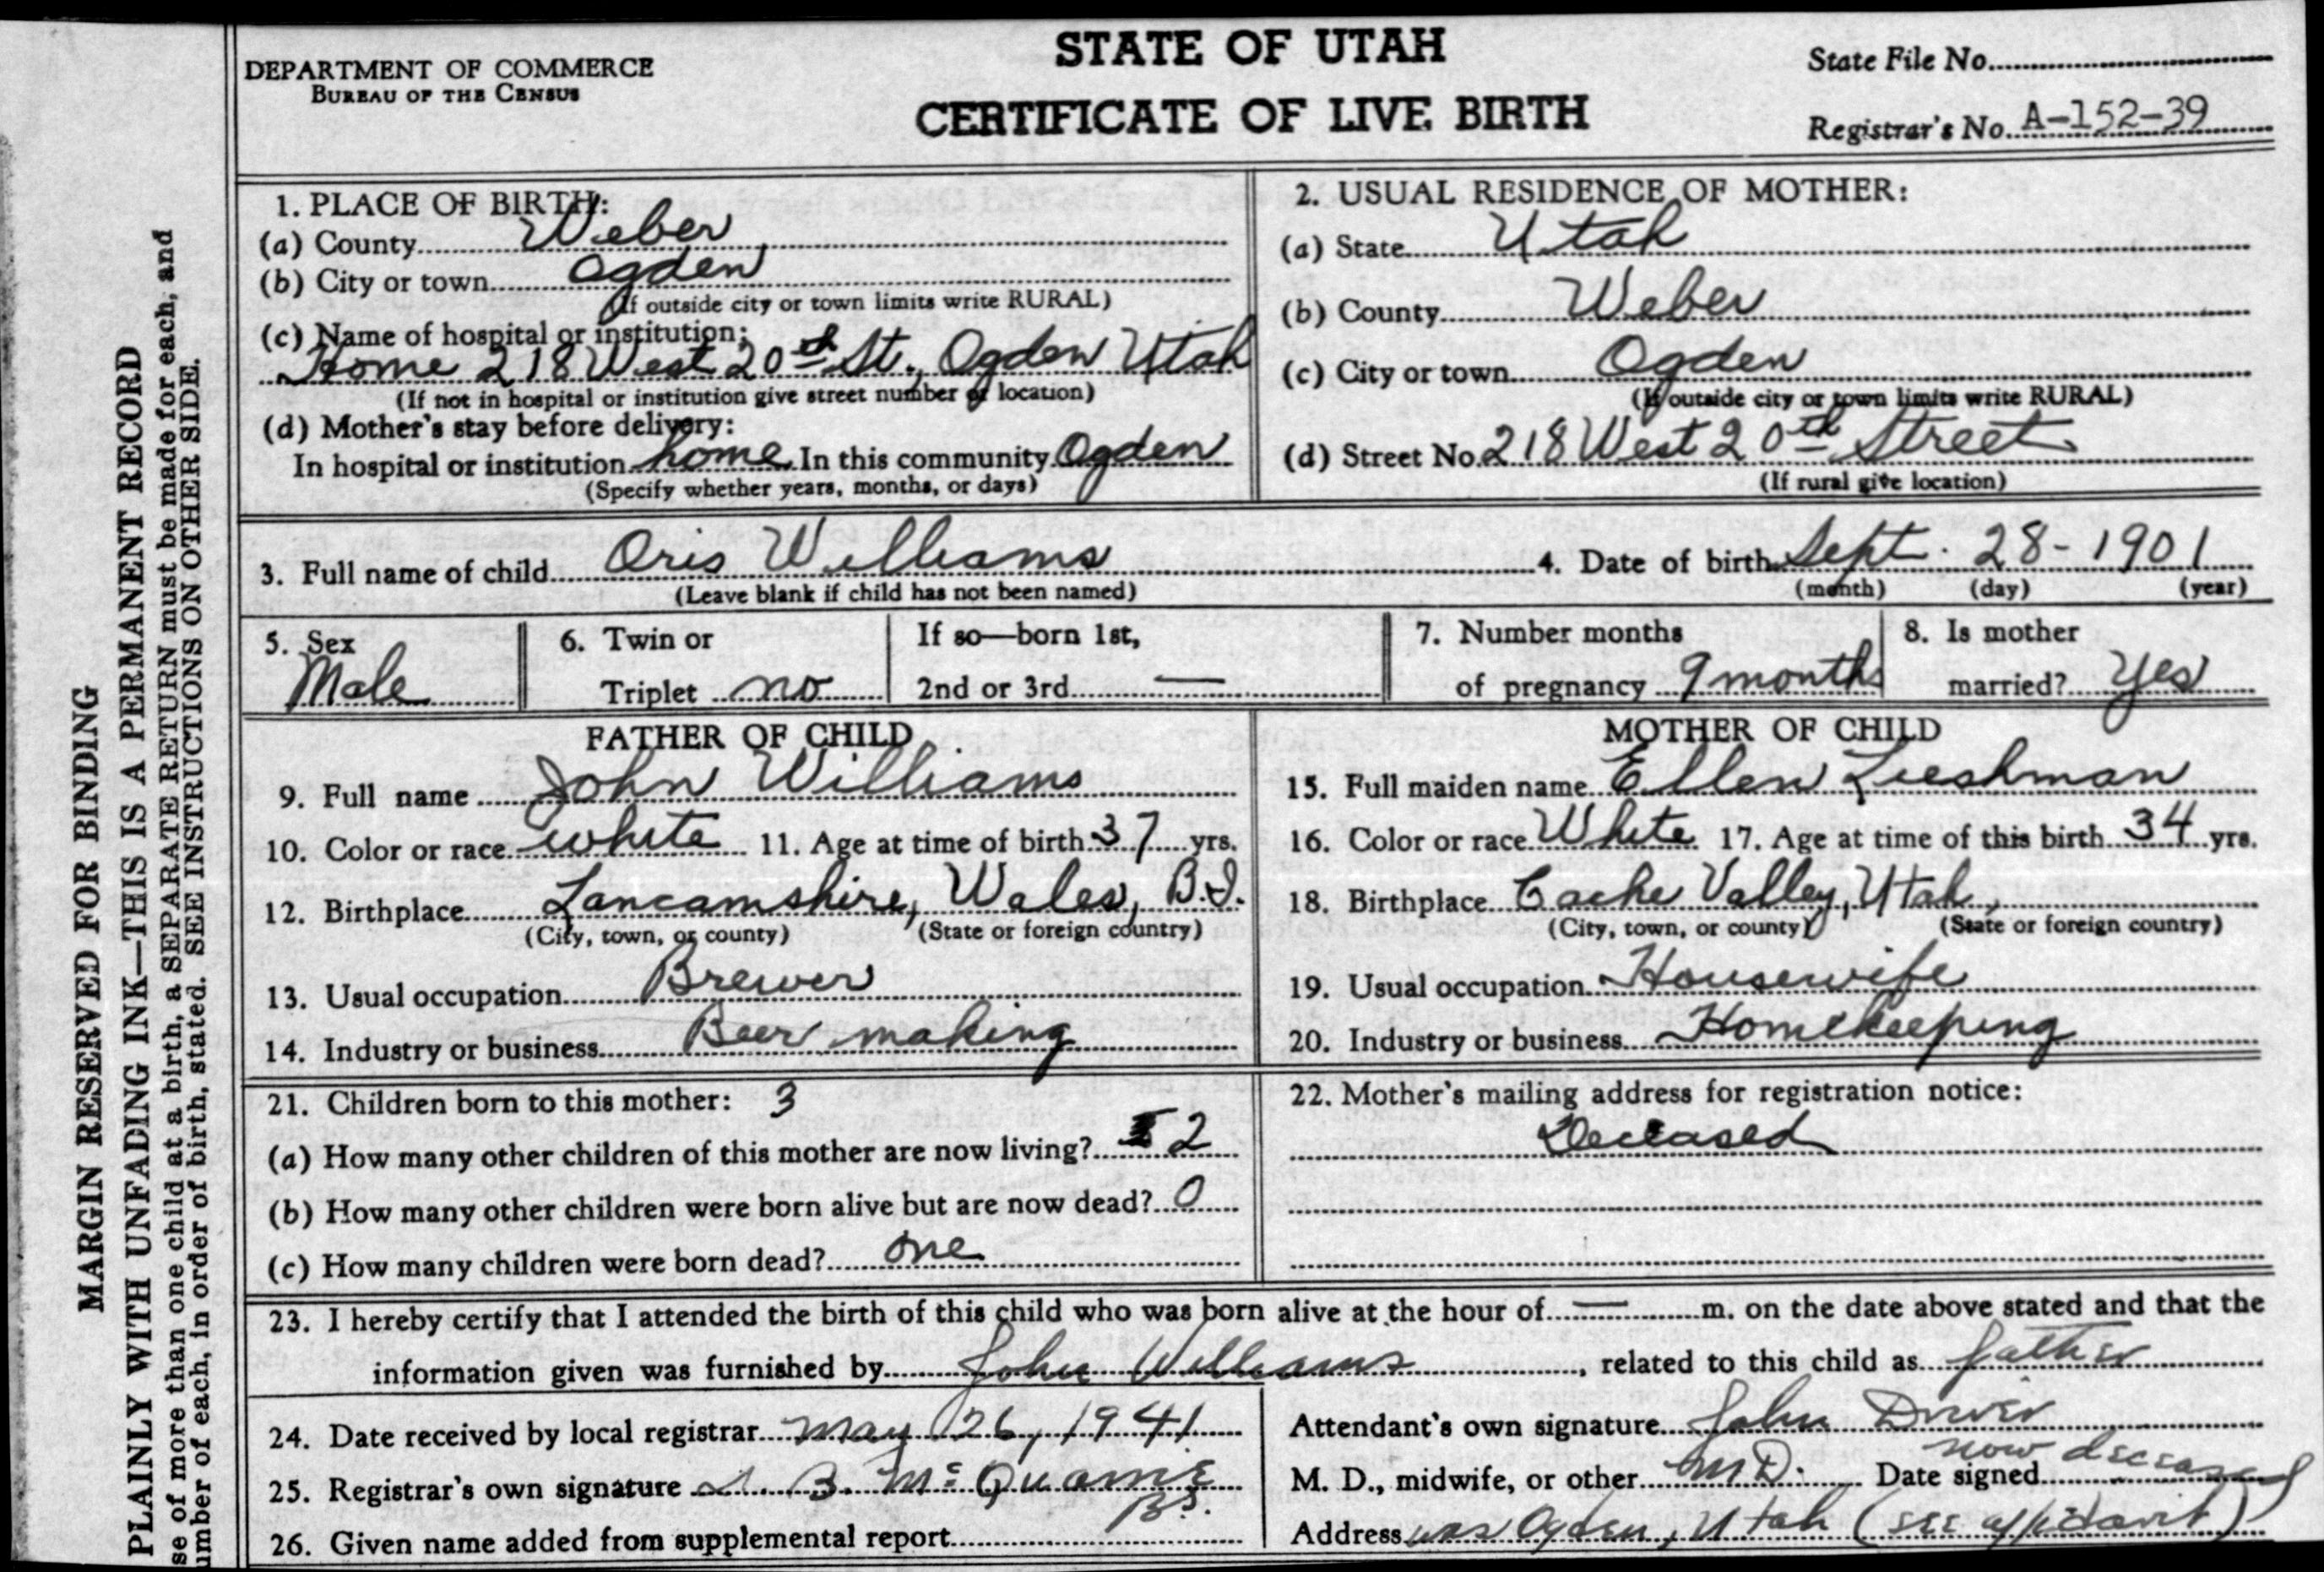 DEPARTMENT OF COMMERCE
BUREAU OF THE CENSUS
STATE OF UTAH
CERTIFICATE OF LIVE BIRTH
State File No.
Registrar's No. A-152-39
MARGIN RESERVED FOR BINDING
PLAINLY WITH UNFADING INK—THIS IS A PERMANENT RECORD
se of more than one child at a birth, a SEPARATE RETURN must be made for each, and
umber of each, in order of birth, stated. SEE INSTRUCTIONS ON OTHER SIDE.
1. PLACE OF BIRTH:
(a) County Weber
(b) City or town Ogden
(If outside city or town limits write RURAL)
(c) Name of hospital or institution:
Home 218 West 20th St., Ogden Utah
(If not in hospital or institution give street number or location)
(d) Mother's stay before delivery:
In hospital or institution home In this community Ogden
(Specify whether years, months, or days)
2. USUAL RESIDENCE OF MOTHER:
(a) State Utah
(b) County Weber
(c) City or town Ogden
(If outside city or town limits write RURAL)
(d) Street No. 218 West 20th Street
(If rural give location)
3. Full name of child Oris Williams 4. Date of birth Sept. 28-1901
(Leave blank if child has not been named) (month) (day) (year)
5. Sex Male
6. Twin or Triplet no
If so—born 1st, 2nd or 3rd —
7. Number months of pregnancy 9 months
8. Is mother married? Yes
FATHER OF CHILD
9. Full name John Williams
10. Color or race white 11. Age at time of birth 37 yrs.
12. Birthplace Lancamshire, Wales, B.I.
(City, town, or county) (State or foreign country)
13. Usual occupation Brewer
14. Industry or business Beer making
MOTHER OF CHILD
15. Full maiden name Ellen Leeshman
16. Color or race White 17. Age at time of this birth 34 yrs.
18. Birthplace Cache Valley, Utah,
(City, town, or county) (State or foreign country)
19. Usual occupation Housewife
20. Industry or business Homekeeping
21. Children born to this mother: 3
(a) How many other children of this mother are now living? 2
(b) How many other children were born alive but are now dead? 0
(c) How many children were born dead? one
22. Mother's mailing address for registration notice:
Deceased
23. I hereby certify that I attended the birth of this child who was born alive at the hour of — m. on the date above stated and that the
information given was furnished by John Williams, related to this child as father
24. Date received by local registrar May 26, 1941
25. Registrar's own signature B. McQuarrie
26. Given name added from supplemental report
Attendant's own signature John Driver
now deceased
M. D., midwife, or other M.D. Date signed
Address was Ogden, Utah (see affidavit)